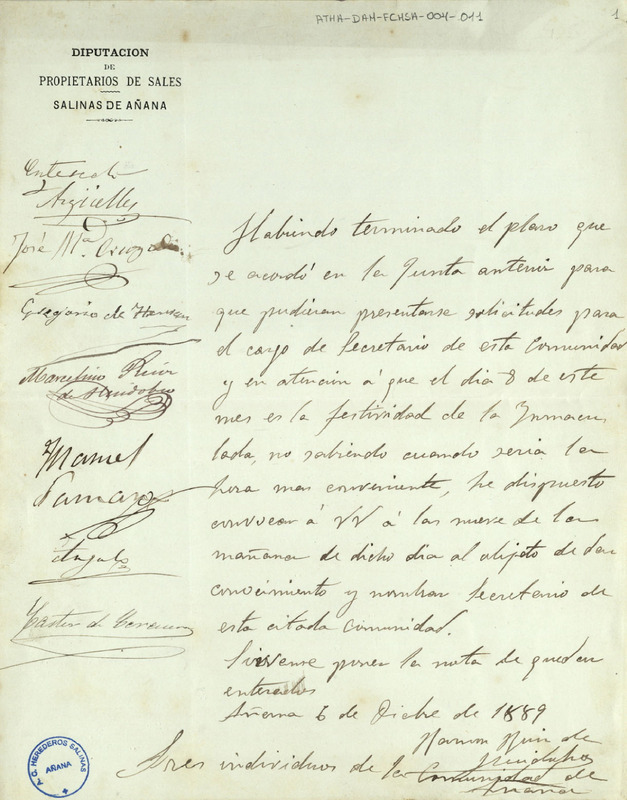 ATHA-DAH-FCHSA-004-011
1
DIPUTACION
DE
PROPIETARIOS DE SALES
SALINAS DE AÑANA
Enterado
Argüelles
José Mª
Gregorio de
Marcelino
de Mendoleo
Manuel
Tamayo
Angulo
Castor de
Habiendo terminado el plazo que
se acordó en la Junta anterior para
que pudieran presentarse solicitudes para
el cargo de Secretario de esta Comunidad
y en atencion á que el dia 8 de este
mes es la festividad de la Inmacu
lada, no sabiendo cuando seria la
hora mas conveniente, he dispuesto
convocar á VV á las nueve de la
mañana de dicho dia al objeto de dar
conocimiento y nombrar Secretario de
esta citada Comunidad.
Sirvanse poner la nota de quedar
enterados
Añana 6 de Dicbre de 1889
Ramon Ruiz de
Sres individuos de la Comunidad de
Añana
G. HEREDEROS SALINAS
AÑANA